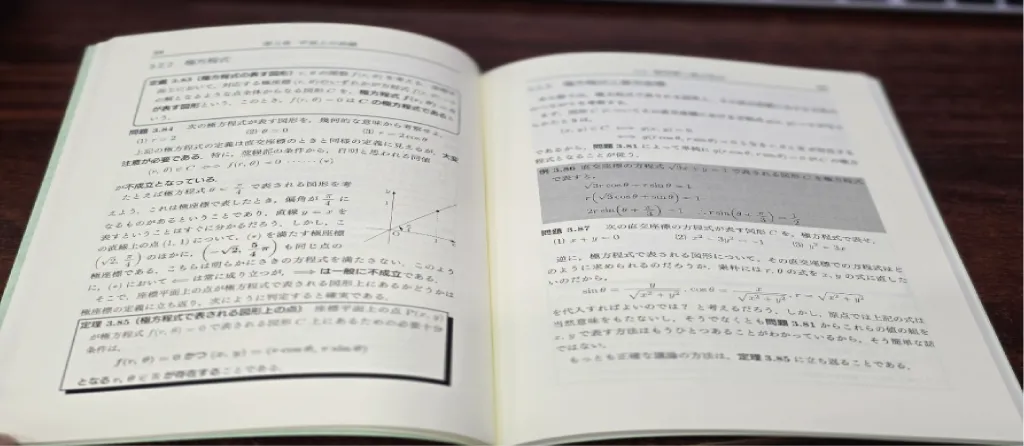 5.2.2 極方程式
定義 3.83 (極方程式の表す図形)
が表す図形という. このとき, f(r, θ) = 0 は C の極方程式であると
いう.
問題 3.84 次の極方程式が表す図形を, 幾何的な意味から考察せよ.
(1) r = 2 (2) θ = 0 (3) r = 2cosθ
上記の極方程式の定義は直交座標のときと同様の定義に見えるが, 大変
注意が必要である. 特に, 常識的の条件から, 自明と思われる同値
(r, θ) ∈ C ⟺ f(r, θ) = 0 ⋯⋯(*)
が不成立となっている.
たとえば極方程式 θ = π/4 で表される図形を考
えよう. これは極座標で表したとき, 偏角が π/4 に
なるものがあるということであり, 直線 y = x を
表すということはすぐに分かるだろう. しかし, こ
の直線上の点 (1, 1) について, (*) を満たす極座標
(√2, π/4) のほかに, (−√2, 5/4 π) も同じ点の
極座標である. こちらは明らかにさきの方程式を満たさない. このよう
に, (*) において ⟸ は常に成り立つが, ⟹ は一般に不成立である.
そこで, 座標平面上の点が極方程式で表される図形上にあるかどうかは
極座標の定義に立ち返り, 次のように判定すると確実である.
定理 3.85 (極方程式で表される図形上の点) 座標平面上の点 P(x, y)
が極方程式 f(r, θ) = 0 で表される図形 C 上にあるための必要十分
条件は,
f(r, θ) = 0 かつ (x, y) = (r cos θ, r sin θ)
となる r, θ ∈ R が存在することである.
であるから, 問題 3.81 によって
程式となることが従う.
例 3.86 直交座標の方程式 √3x + y = 1 で表される図形 C を極方程式
で表する.
√3r cos θ + r sin θ = 1
r(√3 cos θ + sin θ) = 1
2r sin(θ + π/3) = 1 ∴ r sin(θ + π/3) = 1/2
問題 3.87 次の直交座標の方程式が表す図形 C を, 極方程式で表せ.
(1) x + y = 0 (2) x² − 3y² = −1 (3) y² = 3x
逆に, 極方程式で表される図形について, その直交座標での方程式はど
のように求められるのだろうか. 素朴には r, θ の式を x, y の式に直した
いのだから,
sin θ = y/√(x² + y²), cos θ = x/√(x² + y²), r = √(x² + y²)
を代入すればよいのでは? と考えるだろう. しかし, 原点では上記の式は
当然意味をもたないし, そうでなくとも問題 3.81 からこれらの値の組を
x, y で表す方法はもうひとつあることがわかっているから, そう簡単な話
ではない.
もっとも正確な議論の方法は, 定理 3.85 に立ち返ることである.